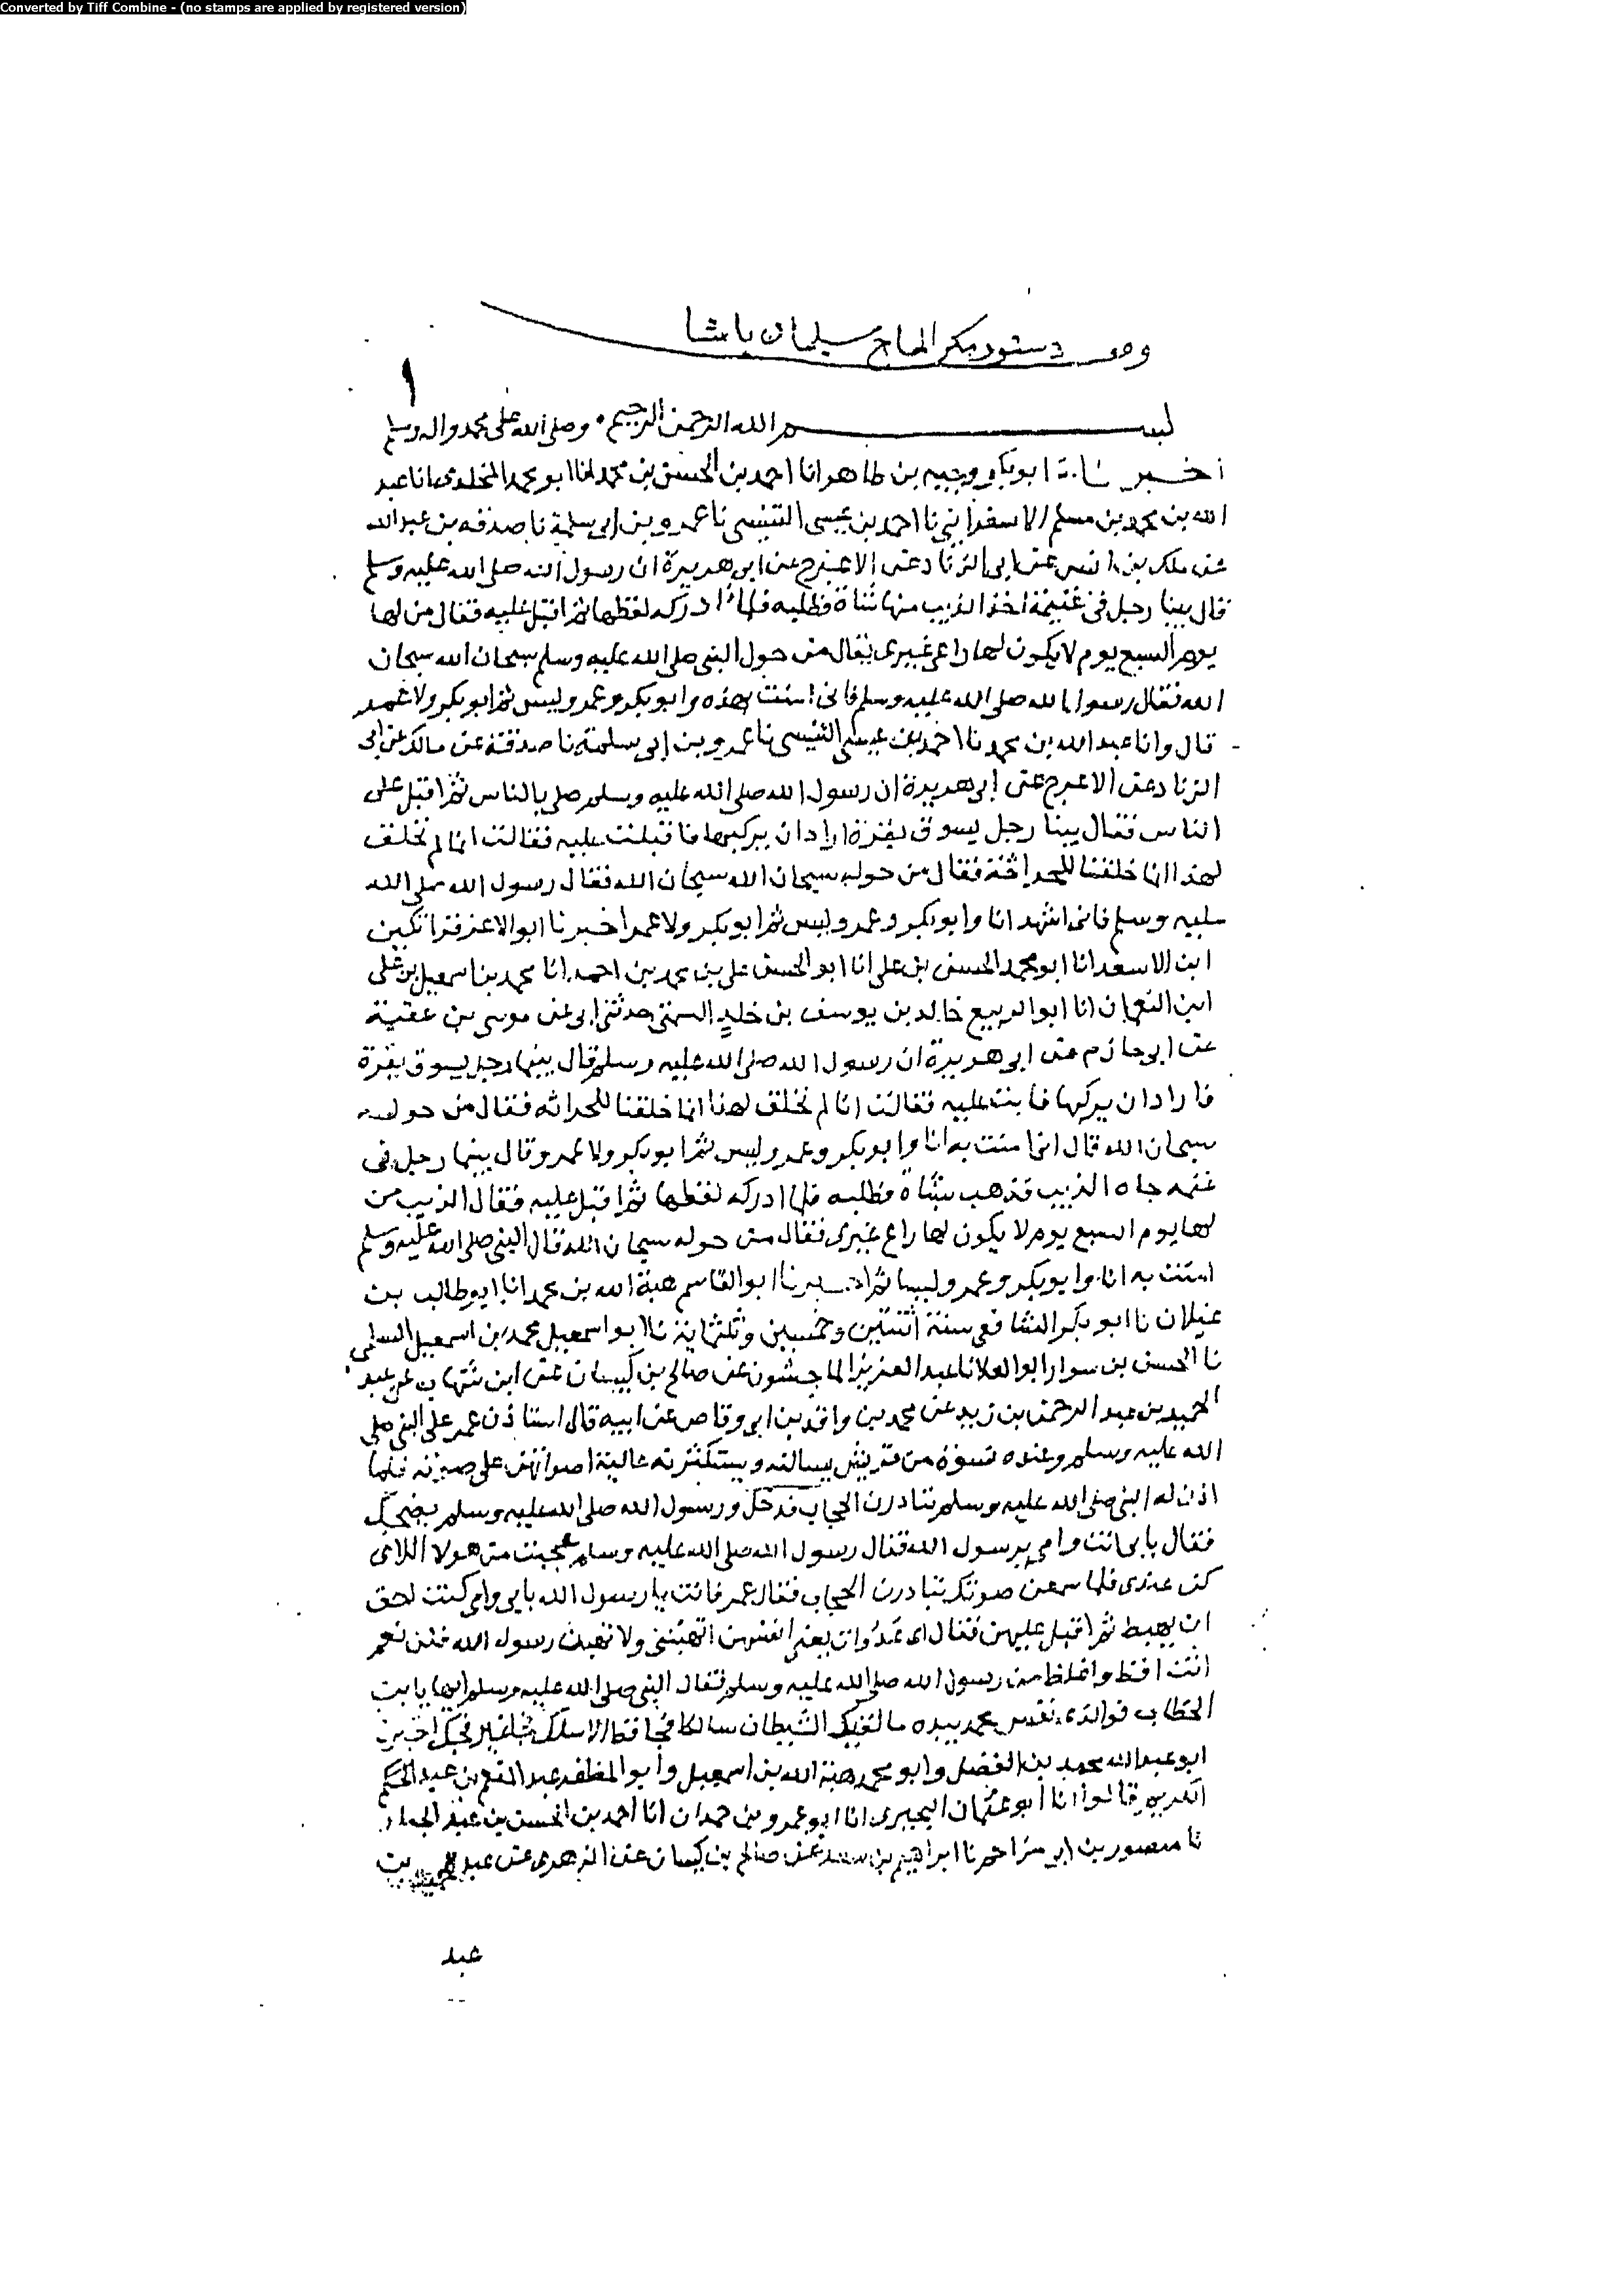 Converted by Tiff Combine - (no stamps are applied by registered version)
دستور مكرم الحاج سليمان باشا
١
بسم الله الرحمن الرحيم وصلى الله على محمد واله وسلم
اخبرنا ابو بكر وجيه بن طاهر انا احمد بن الحسن بن محمد انا ابو محمد المخلدى انا عبد
الله بن محمد بن مسلم الاسفرايني نا احمد بن عيسى التنيسى نا عمرو بن ابى سلمة نا صدقه بن عبد الله
عن ملك بن انس عن ابى الزناد عن الاعرج عن ابى هريرة ان رسول الله صلى الله عليه وسلم
قال بينا رجل فى غنيمة اخذ الذيب منها شاة فطلبه فلما ادركه لفظها ثم اقبل عليه فقال من لها
يوم السبع يوم لا يكون لها راعى غيرى فقال من حول النبى صلى الله عليه وسلم سبحان الله سبحان
الله فقال رسول الله صلى الله عليه وسلم فانى امنت بهذه وابو بكر وعمر وليس ثم ابو بكر ولا عمر
قال وانا عبد الله بن محمد نا احمد بن عيسى التنيسى نا عمرو بن ابى سلمة نا صدقة عن مالك عن ابى
الزناد عن الاعرج عن ابى هريرة ان رسول الله صلى الله عليه وسلم صلى بالناس ثم اقبل على
الناس فقال بينا رجل يسوق بقرة اراد ان يركبها فاقبلت عليه فقالت انا لم نخلق
لهذا انا خلقنا للحراثة فقال من حوله سبحان الله سبحان الله فقال رسول الله صلى الله
عليه وسلم فانى اشهد انا وابو بكر وعمر وليس ثم ابو بكر ولا عمر اخبرنا ابو الاعز قراتكين
ابن الاسعد انا ابو محمد الحسن بن على انا ابو الحسن على بن محمد بن احمد انا محمد بن اسمعيل بن على
ابن النعمان انا ابو الربيع خالد بن يوسف بن خالد السمتى حدثنى ابى عن موسى بن عقبة
عن ابى حازم عن ابى هريرة ان رسول الله صلى الله عليه وسلم قال بينما رجل يسوق بقرة
فاراد ان يركبها فابت عليه فقالت انا لم نخلق لهذا انما خلقنا للحراثه فقال من حوله
سبحان الله قال انى امنت به انا وابو بكر وعمر وليس ثم ابو بكر ولا عمر وقال بينما رجل فى
غنمه جاه الذيب فذهب بشاة فطلبه فلما ادركه لفظها ثم اقبل عليه فقال الذيب من
لها يوم السبع يوم لا يكون لها راع غيرى فقال من حوله سبحان الله قال النبى صلى الله عليه وسلم
امنت به انا وابو بكر وعمر وليسا ثم اخبرنا ابو القاسم هبة الله بن محمد انا ابو طالب بن
غيلان نا ابو بكر الشافعى سنة اثنتين وخمسين وثلثماية نا ابو اسمعيل محمد بن اسمعيل السلمى
نا الحسن بن سوار ابو العلا نا عبد العزيز الماجشون عن صالح بن كيسان عن ابن شهاب عن عبد
الحميد بن عبد الرحمن بن زيد عن محمد بن واقد بن ابى وقاص عن ابيه قال استاذن عمر على النبى صلى
الله عليه وسلم وعنده نسوة من قريش يسالنه ويستكثرنه عالية اصواتهن على صوته فلما
اذن له النبى صلى الله عليه وسلم تبادرن الحجاب فدخل ورسول الله صلى الله عليه وسلم يضحك
فقال بابى انت وامى يرسول الله فقال رسول الله صلى الله عليه وسلم عجبت من هولا اللاى
كن عندى فلما سمعن صوتك تبادرن الحجاب فقال عمر فانت يا رسول الله بابى وامى كنت احق
ان يهبط ثم اقبل عليهن فقال اى عدوات انفسهن اتهبننى ولا تهبن رسول الله قلن نعم
انت افظ واغلظ من رسول الله صلى الله عليه وسلم فقال النبى صلى الله عليه وسلم ايها يا بن
الخطاب فوالذى نفس محمد بيده ما لقيك الشيطان سالكا فجا قط الا سلك فجا غير فجك اخبرنا
ابو عبد الله محمد بن الفضل وابو محمد هبة الله بن اسمعيل وابو المظفر عبد المنعم بن عبد الكريم
قالوا انا ابو عثمان البحيرى انا ابو عمرو بن حمدان انا احمد بن الحسن بن عبد الجبار
نا منصور بن ابى مزاحم نا ابراهيم بن سعد عن صالح بن كيسان عن الزهرى عن عبد الحميد بن
عبد